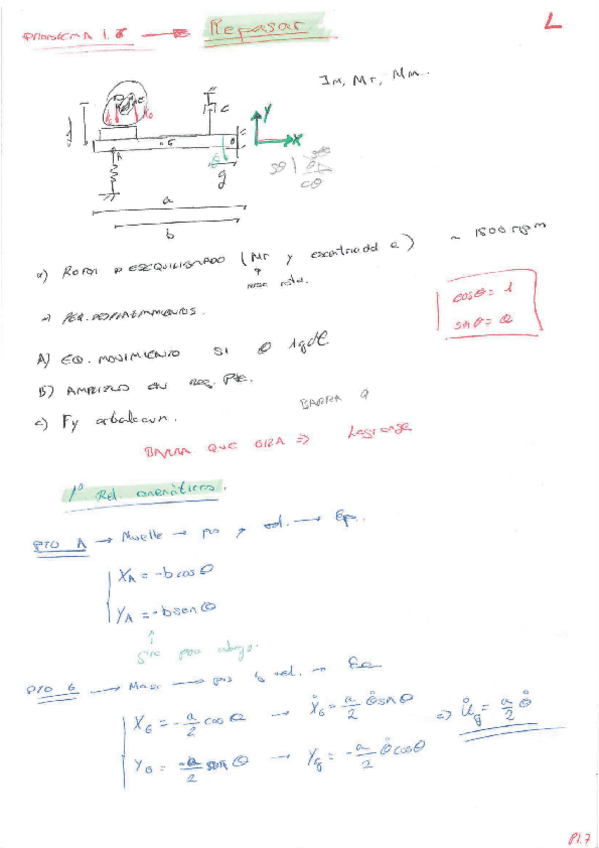 PROBLEMA 1.6 → Repasar
L
Im, Mr, Mm...
Y
X
c
A
G
g
a
b
Sθ
θ
Cθ
a) ROTOR DESEQUILIBRADO (Mr y excentricidad e) ~ 1500 rpm
masa rotor.
PEQ. DESPLAZAMIENTOS.
cosθ = 1
senθ = θ
A) EQ. MOVIMIENTO SI θ 1gdl
B) AMPLITUD EN REG. PTE.
c)
BARRA
BARRA QUE GIRA ⇒ Lagrange
1º Rel. cinemáticas.
PTO A → Muelle → pos y vel. → Ep.
X_A = -b cos θ
Y_A = -b sen θ
↑
gira para abajo.
PTO G → Masa → pos y vel. → Ec
X_G = -a/2 cos θ → Ẋ_G = a/2 θ̇ sen θ ⇒ U̇_g = a/2 θ̇
Y_G = -a/2 sen θ → Y_g = -a/2 θ̇ cos θ
P1.7